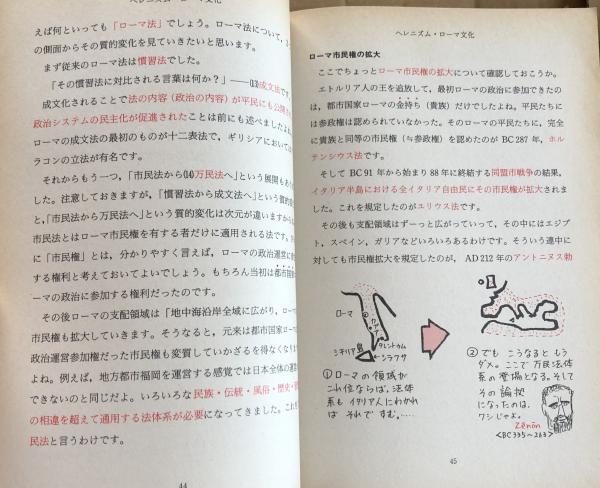 ヘレニズム・ローマ文化
えば何といっても「ローマ法」でしょう。ローマ法について、2つ
の側面からその質的変化を見ていきたいと思います。
まず従来のローマ法は慣習法でした。
「その慣習法に対比される言葉は何か?」——⒀成文法です。
成文化されることで法の内容(政治の内容)が平民にも公開され
政治システムの民主化が促進されたことは前にも述べましたよね
ローマの成文法の最初のものが十二表法で、ギリシアにおいては
ラコンの立法が有名です。
それからもう一つ,「市民法から⒁万民法へ」という展開もあり
した。注意しておきますが,「慣習法から成文法へ」という
と,「市民法から万民法へ」という質的変化は次元が違いますから
市民法とはローマ市民権を有する者だけに適用される法です。
に「市民権」とは、分かりやすく言えば、ローマの政治運営に
する権利と考えておいてよいでしょう。もちろん当初は都市国
ーマの政治に参加する権利だったのです。
その後ローマの支配領域は「地中海沿岸全域に広がり,ローマ
民権も拡大していきます。そうなると、元来は都市国家ローマ
政治運営参加権だった市民権も変質していかざるを得なくなり
よね。例えば、地方都市福岡を運営する感覚では日本全体の運
できないのと同じだよ。いろいろな民族・伝統・風俗・歴史・
の相違を超えて通用する法体系が必要になってきました。これ
民法と言うわけです。
44
ヘレニズム・ローマ文化
ローマ市民権の拡大
ここでちょっとローマ市民権の拡大について確認しておこうか。
エトルリア人の王を追放して、最初ローマの政治に参加できたの
は、都市国家ローマの金持ち(貴族)だけでしたよね。平民たちに
は参政権は認められていなかった。そのローマの平民たちに、完全
に貴族と同等の市民権(≒参政権)を認めたのが BC 287年,ホル
テンシウス法です。
そして BC 91 年から始まり 88年に終結する同盟市戦争の結果,
イタリア半島における全イタリア自由民にその市民権が拡大されま
した。これを規定したのがユリウス法です。
その後も支配領域はずーっと広がっていって、その中にはエジプ
ト、スペイン、ガリアなどいろいろあるわけです。そういう連中に
対しても市民権拡大を規定したのが、AD 212 年のアントニヌス勅
ローマ
カプア
タレントゥム
シチリア島
シラクサ
①ローマの領域が
これ位ならば,法体
系も イタリア人にわかれ
ば それで すむ。……
②でも こうなると もう
ダメ。ここで 万民法体
系の登場となる。そして
その論拠
になったのは、
ワシじゃよ。
Zēnōn
<BC335〜263>
45